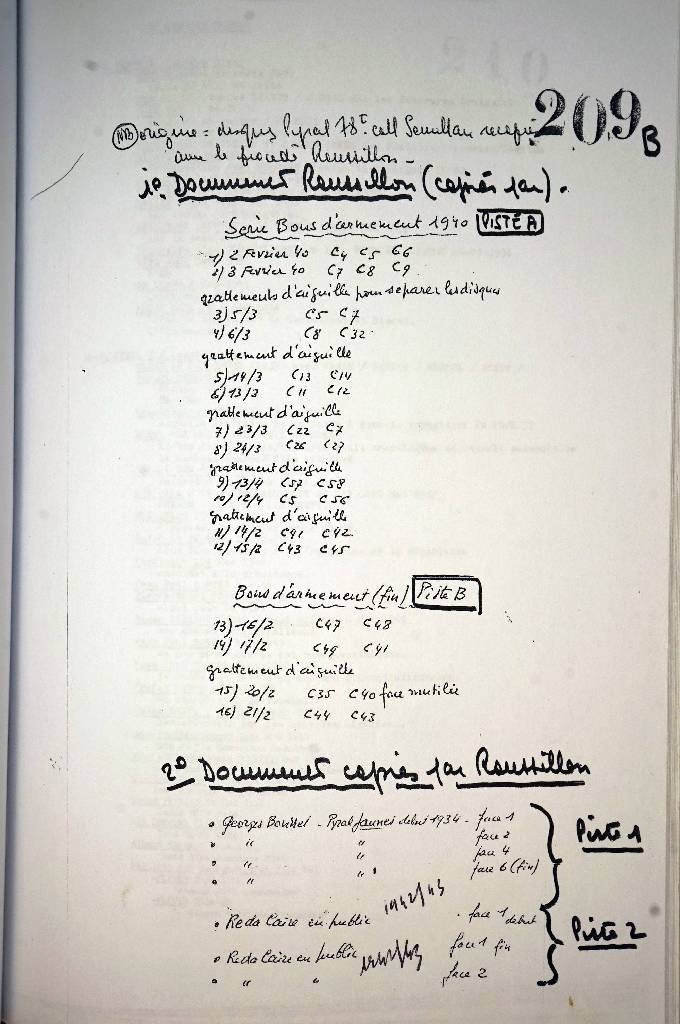 209 B
NB origine = disques Pyral 78T. coll
avec le procédé Roussillon -
1º. Document Roussillon (copiés par).
Serie Bons d'armement 1940 PISTE A
1) 2 Fevrier 40 C4 C5 C6
2) 3 Fevrier 40 C7 C8 C9
grattements d'aiguille pour separer les disques
3) 5/3 C5 C7
4) 6/3 C8 C32
grattement d'aiguille
5) 14/3 C13 C14
6) 13/3 C11 C12
grattement d'aiguille
7) 23/3 C22 C7
8) 24/3 C26 C27
grattement d'aiguille
9) 13/4 C57 C58
10) 12/4 C5 C56
grattement d'aiguille
11) 14/2 C41 C42
12) 15/2 C43 C45
Bons d'armement (fin) Piste B
13) 16/2 C47 C48
14) 17/2 C49 C41
grattement d'aiguille
15) 20/2 C35 C40 face mutilée
16) 21/2 C44 C43
2º Document copiés par Roussillon
• Georges Boursel - Pyral Jaunes debut 1934 - face 1
• " " face 2
• " " face 4
• " " face 6 (fin)
Piste 1
• Reda Caire en public 1942/43 • face 1 debut
• Reda Caire en public 1942/43 face 1 fin
• " " face 2
Piste 2